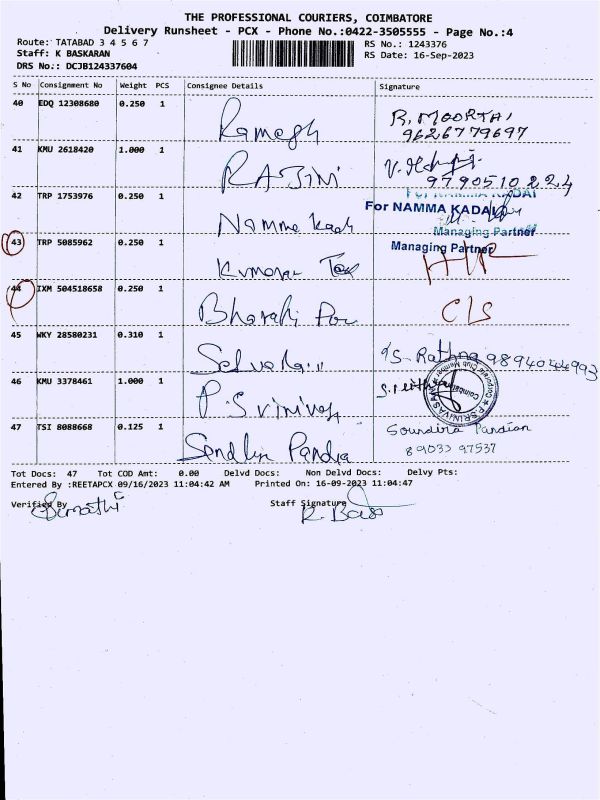 THE PROFESSIONAL COURIERS, COIMBATORE
Delivery Runsheet - PCX - Phone No.:0422-3505555 - Page No.:4
Route: TATABAD 3 4 5 6 7
RS No.: 1243376
Staff: K BASKARAN
RS Date: 16-Sep-2023
DRS No.: DCJB124337604
S No Consignment No Weight PCS Consignee Details Signature
40 EDQ 12308680 0.250 1 Ramesh R. MOORTHI
9626779697
41 KMU 2618420 1.000 1 RAJINI
9790510224
42 TRP 1753976 0.250 1 Namma Kada
For NAMMA KADAI
Managing Partner
Managing Partner
43 TRP 5085962 0.250 1 Kumaran Tex
44 IXM 504518658 0.250 1 Bharathi CLS
45 WKY 28580231 0.310 1 Selvarani S. Rathna 9894044993
46 KMU 3378461 1.000 1 P. Srinivas
P. SRINIVASAN
47 TSI 8088668 0.125 1 Pandia Soundira Pandian
89033 97537
Tot Docs: 47 Tot COD Amt: 0.00 Delvd Docs: Non Delvd Docs: Delvy Pts:
Entered By :REETAPCX 09/16/2023 11:04:42 AM Printed On: 16-09-2023 11:04:47
Verified By Staff Signature